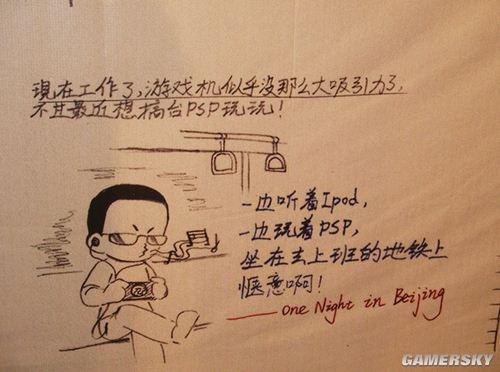 現在工作了,游戏机似乎没那么大吸引力了,
不 最近想搞台PSP玩玩!
一边听着Ipod,
一边玩着PSP,
坐在去上班的地铁上
惬意啊!
——One Night in Beijing
GAMERSKY